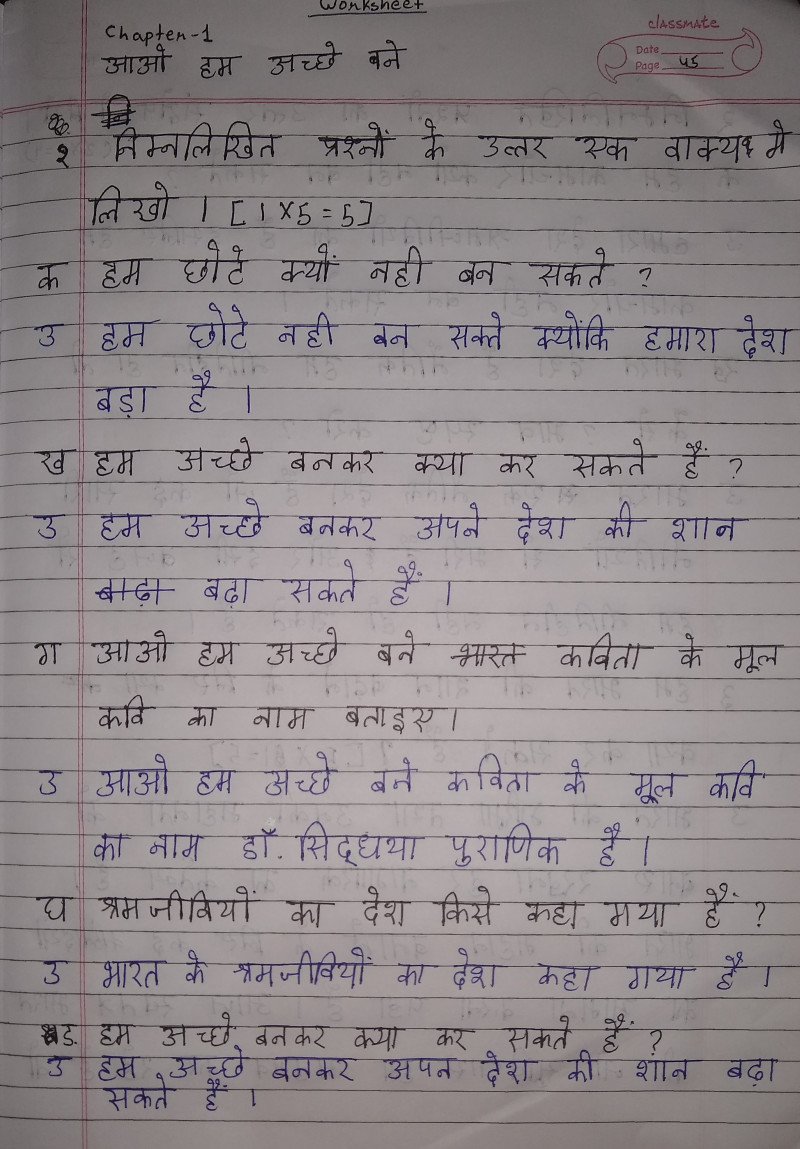 Worksheet
Chapter-1
classmate
आओ हम अच्छे बने
Date
Page 45
क.
१ निम्नलिखित प्रश्नों के उत्तर एक वाक्य में
लिखो । [1×5=5]
क हम छोटे क्यों नही बन सकते ?
उ हम छोटे नही बन सकते क्योंकि हमारा देश
बड़ा है ।
ख हम अच्छे बनकर क्या कर सकते हैं ?
उ हम अच्छे बनकर अपने देश की शान
बाढ़ा बढ़ा सकते हैं ।
ग आओ हम अच्छे बने भारत कविता के मूल
कवि का नाम बताइए।
उ आओ हम अच्छे बने कविता के मूल कवि
का नाम डॉ. सिद्धया पुराणिक है ।
घ श्रमजीवियों का देश किसे कहा गया हैं ?
उ भारत के श्रमजीवियों का देश कहा गया है ।
ङ. हम अच्छे बनकर क्या कर सकते हैं ?
उ हम अच्छे बनकर अपन देश की शान बढ़ा
सकते हैं ।